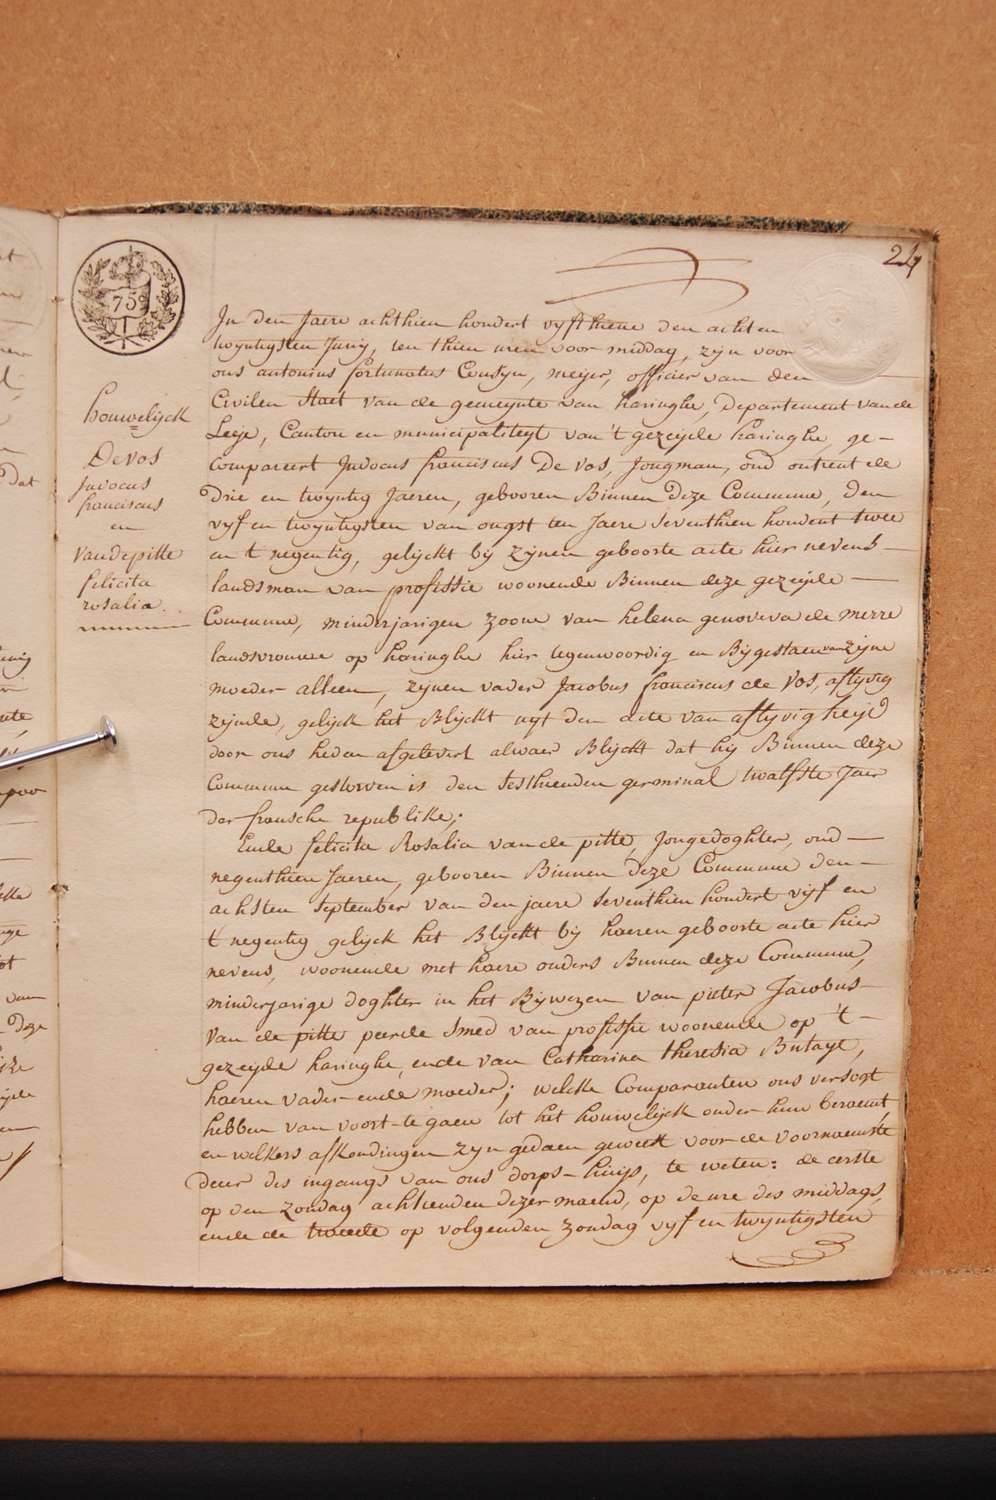 24
75
In den Jaere achthien hondert vyfthiene den acht en
twyntigsten Juny, ten thien uren voor middag, zyn voor
ons antonius fortunatus Cousyn, meyer, officier van den
Civilen Staet van de gemeynte van haringhe, Departement van de
Leije, Canton en municipaliteyt van 't gezeijde haringhe, ge-
Compareert Judocus franciscus De vos, Jongman, oud ontrent de
Drie en twyntig Jaeren, gebooren Binnen deze Commune, den
vyf en twyntigsten van ougst ten Jaere seventhien hondert twee
en t negentig, gelyckt bij zynen geboorte acte hier nevens
landsman van professie woonende Binnen deze gezeijde
Commune, minderjarigen zoone van helena genoveva de merre
landsvrouwe op haringhe hier tegenwoordig en Bijgestaen van zyne
moeder alleen, zynen vader Jacobus franciscus de Vos, aflyvig
zijnde, gelijck het Blijckt uyt den acte van aflyvigheijd
door ons heden afgelevert alwaer Blyckt dat hij Binnen deze
Commune gestorven is den sesthienden germinal twalfste Jaer
der fransche republike;
Ende felicita Rosalia van de pitte, Jongedoghter, oud
negenthien Jaeren, gebooren Binnen deze Commune den
achsten September van den jaere seventhien hondert vyf en
t negentig gelyck het Blyckt bij haeren geboorte acte hier
nevens, woonende met haere ouders Binnen deze Commune,
minderjarige doghter in het Bijwezen van pieter Jacobus
Van de pitte peerde Smed van professie woonende op 't
gezeijde haringhe, ende van Catharina theresia Butaye,
haeren vader ende moeder; welcke Comparanten ons versogt
hebben van voort te gaen tot het houwelijck onder hun beraemt
en welkers afkondingen zyn gedaen geweest voor de voornaemste
deur des ingangs van ons dorps-huijs, te weten: de eerste
op den zondag achtienden dezer maend, op de ure des middags,
ende de tweede op volgenden zondag vyf en twyntigsten
houwelijck
De vos
Judocus
franciscus
en
vandepitte
felicita
rosalia